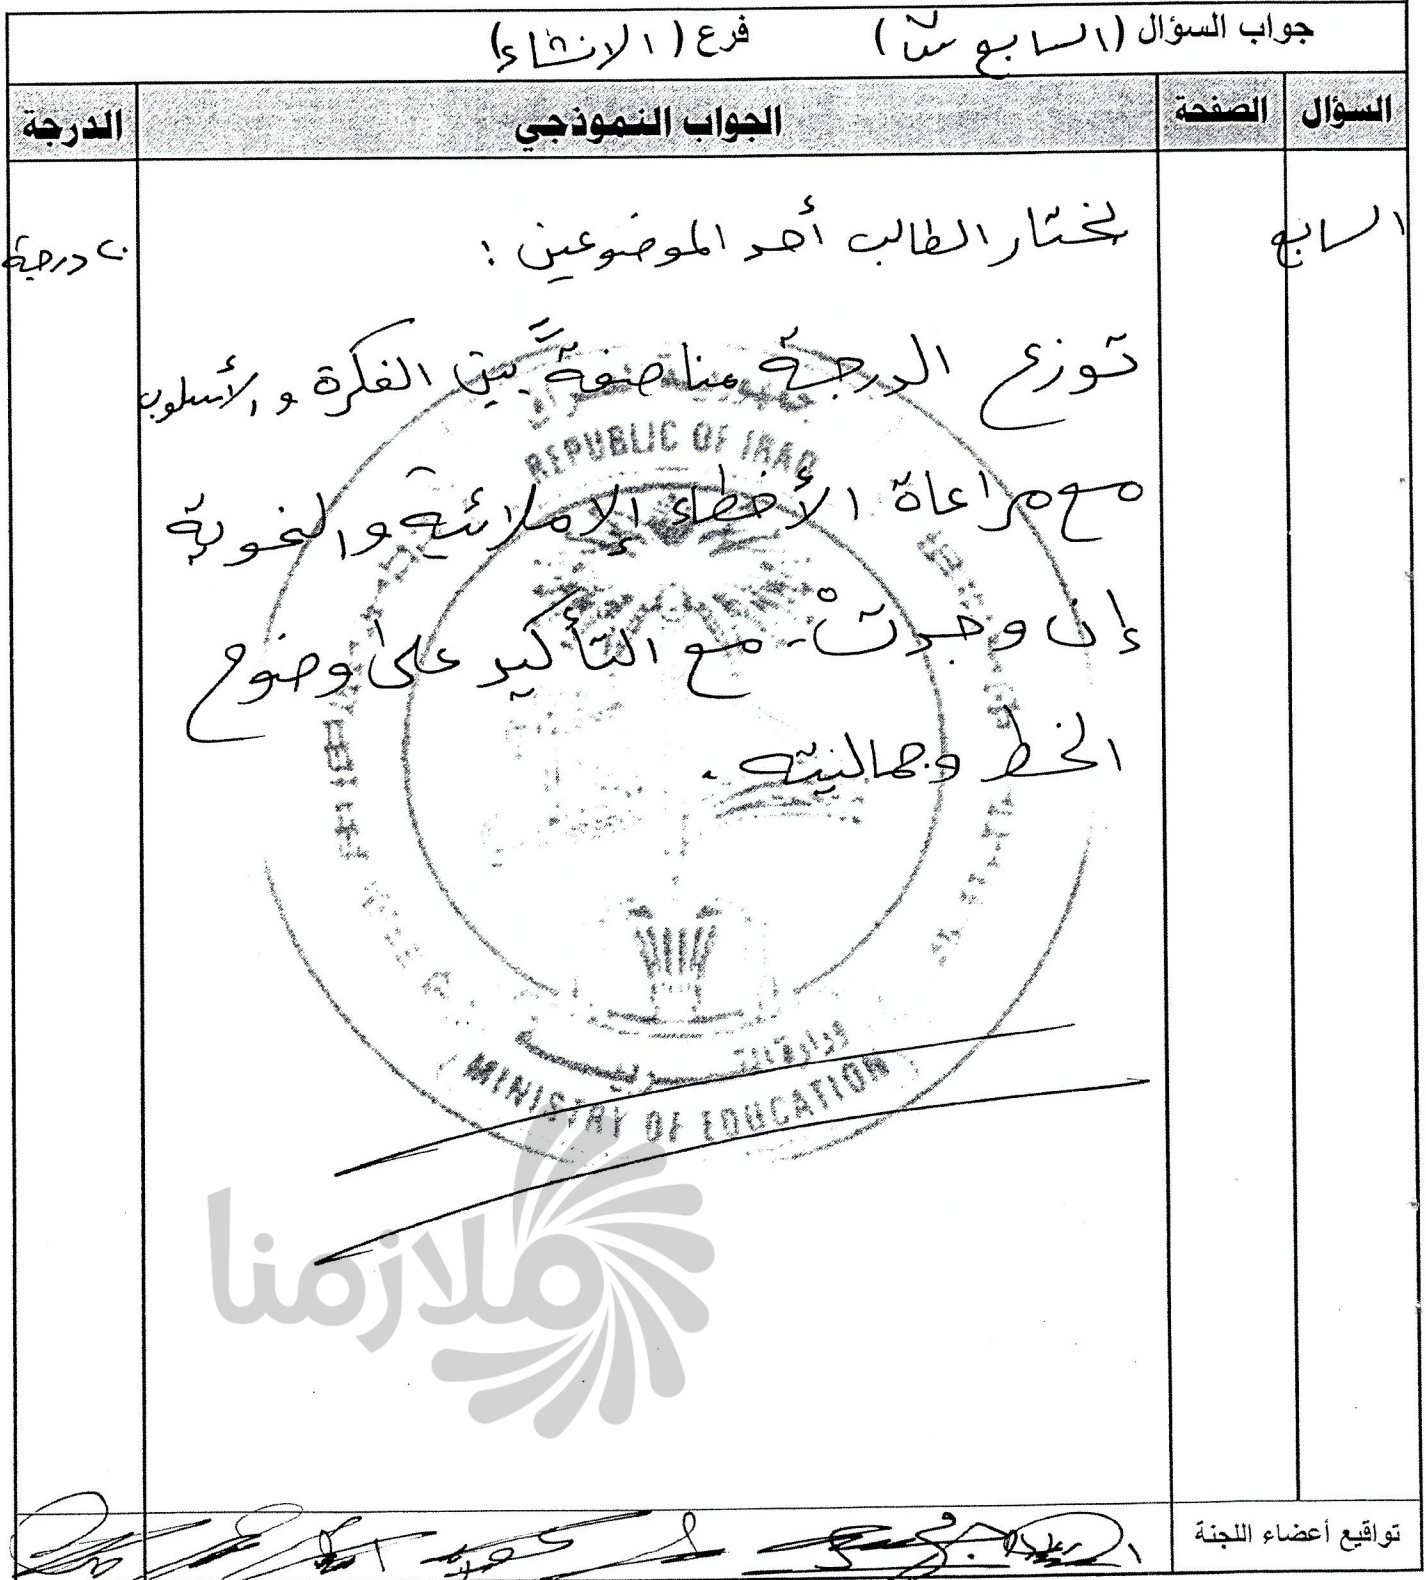 جواب السؤال (السابع) فرع (الانشاء)
السؤال الصفحة الجواب النموذجي الدرجة
السابع يختار الطالب أحد الموضوعين : ٢٠ درجة
توزع الدرجة مناصفةً بين الفكرة والأسلوب
مع مراعاة الأخطاء الإملائية والنحوية
إن وجدتْ، مع التأكيد على وضوح
الخط وجماليته.
جمهورية العراق
REPUBLIC OF IRAQ
وزارة التربية
MINISTRY OF EDUCATION
ملازمنا
تواقيع أعضاء اللجنة